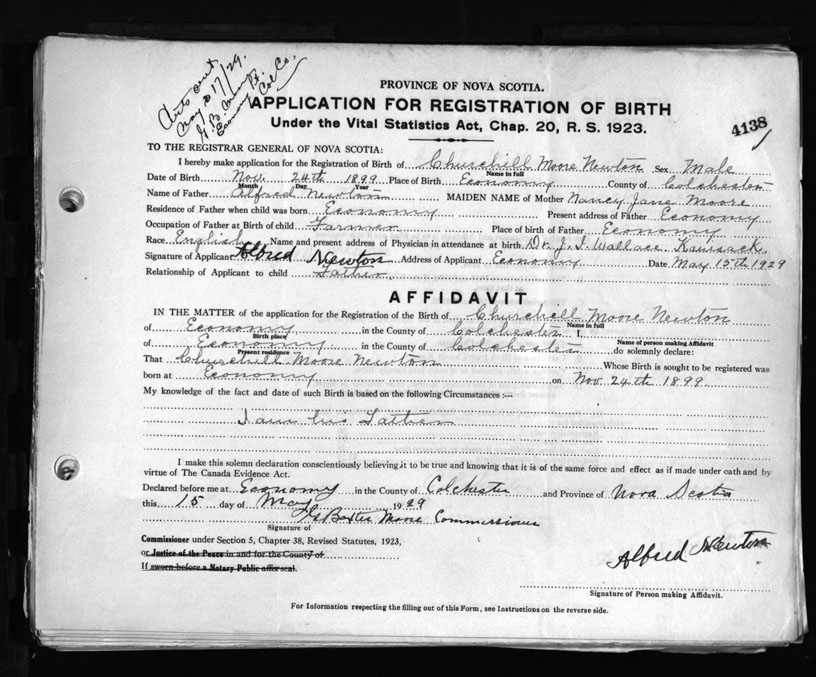 May 17/29.
Economy Pt.
Col Co.
PROVINCE OF NOVA SCOTIA.
APPLICATION FOR REGISTRATION OF BIRTH
Under the Vital Statistics Act, Chap. 20, R. S. 1923.
4138
TO THE REGISTRAR GENERAL OF NOVA SCOTIA:
I hereby make application for the Registration of Birth of Churchill Moore Newton Sex Male
Name in full
Date of Birth Nov. 24th 1899 Place of Birth Economy County of Colchester
Month Day Year
Name of Father Alfred Newton MAIDEN NAME of Mother Nancy Jane Moore
Residence of Father when child was born Economy Present address of Father Economy
Occupation of Father at Birth of child Farmer Place of birth of Father Economy
Race English Name and present address of Physician in attendance at birth Dr. J. I. Wallace
Signature of Applicant Alfred Newton Address of Applicant Economy Date May 15th 1929
Relationship of Applicant to child Father
AFFIDAVIT
IN THE MATTER of the application for the Registration of the Birth of Churchill Moore Newton
Name in full
of Economy in the County of Colchester I,
Birth place Name of person making Affidavit
of Economy in the County of Colchester do solemnly declare:
Present residence
That Churchill Moore Newton Whose Birth is sought to be registered was
born at Economy on Nov. 24th 1899
My knowledge of the fact and date of such Birth is based on the following Circumstances :—
I am his Father
I make this solemn declaration conscientiously believing it to be true and knowing that it is of the same force and effect as if made under oath and by
virtue of The Canada Evidence Act.
Declared before me at Economy in the County of Colchester and Province of Nova Scotia
this 15 day of May 1929
Baxter Moore Commissioner
Signature of
Commissioner under Section 5, Chapter 38, Revised Statutes, 1923,
or Justice of the Peace in and for the County of
If sworn before a Notary Public affix seal.
Alfred Newton
Signature of Person making Affidavit.
For Information respecting the filling out of this Form, see Instructions on the reverse side.